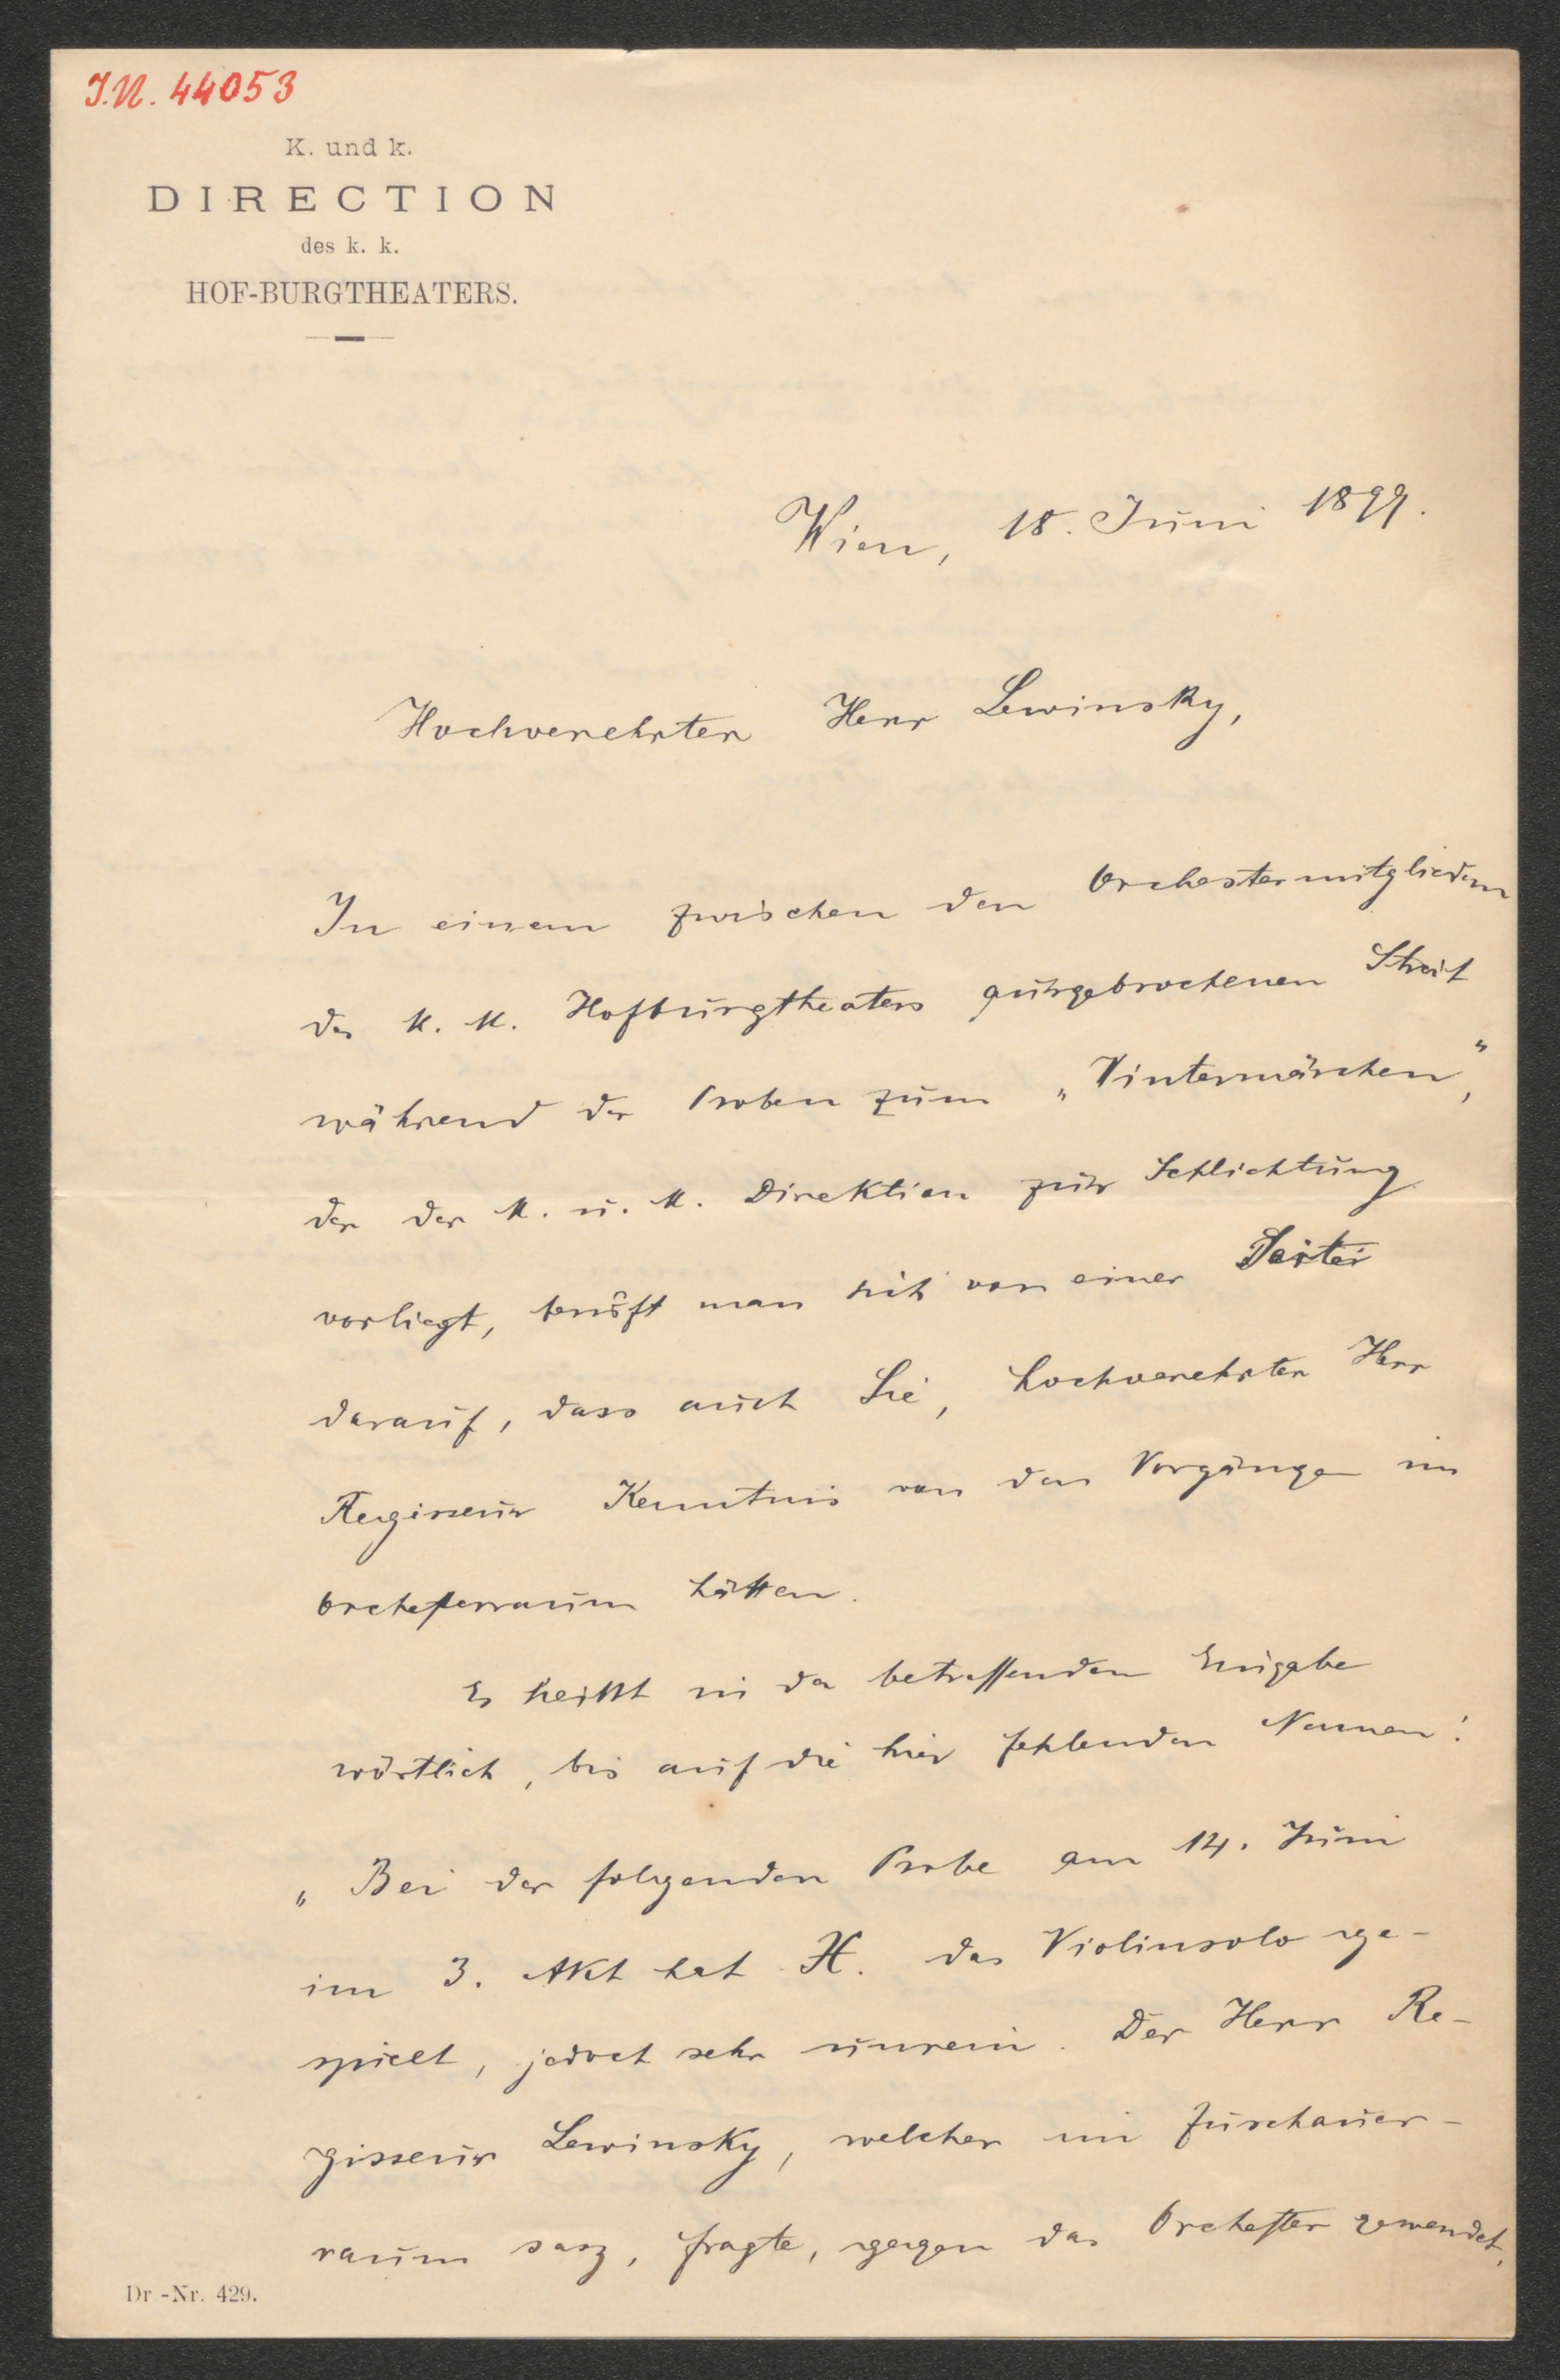 J.N. 44053
K. und k.
DIRECTION
des k. k.
HOF-BURGTHEATERS.
Wien, 18. Juni 1899.
Hochverehrter Herr Lewinsky,
In einem zwischen den Orchestermitgliedern
des k. k. Hofburgtheaters ausgebrochenen Streit
während der Proben zum „Wintermärchen“,
der der k. u. k. Direktion zur Schlichtung
vorliegt, beruft man sich von einer Seite
darauf, dass auch Sie, hochverehrter Herr
Regisseur Kenntnis von den Vorgängen im
Orchesterraum hätten.
Es heisst in der betreffenden Eingabe
wörtlich, bis auf die hier fehlenden Namen:
„Bei der folgenden Probe am 14. Juni
im 3. Akt hat X. das Violinsolo ge-
spielt, jedoch sehr unrein. Der Herr Re-
gisseur Lewinsky, welcher im Zuschauer-
raum sasz, fragte, gegen das Orchester gewendet,
Dr -Nr. 429.